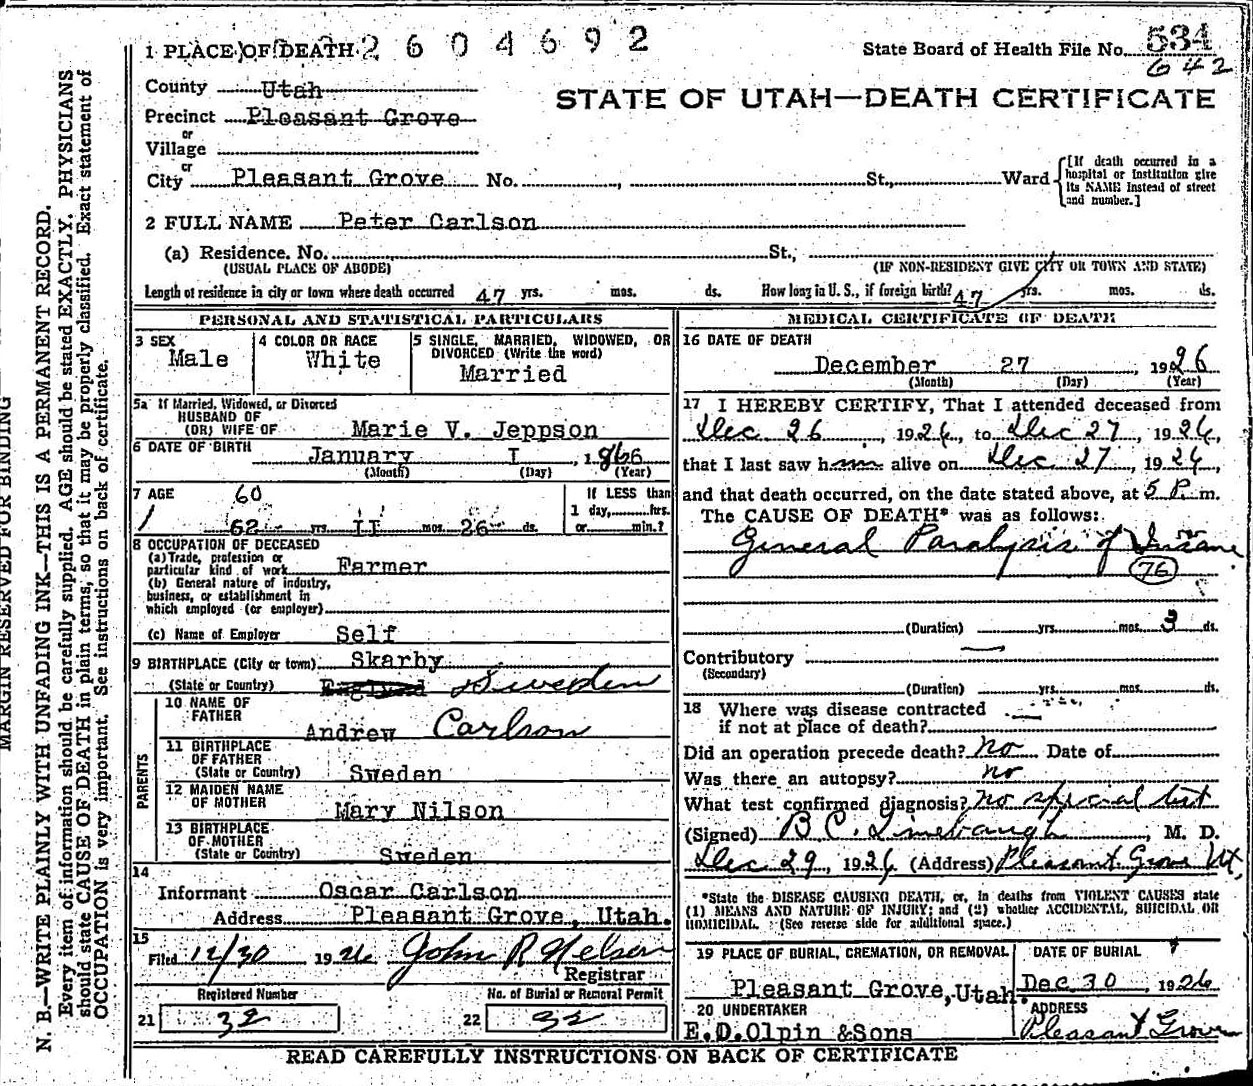 1 PLACE OF DEATH 2604692
State Board of Health File No. 534
642
County Utah
STATE OF UTAH—DEATH CERTIFICATE
Precinct Pleasant Grove
or
Village
or
City Pleasant Grove No. , St., Ward
[If death occurred in a
hospital or institution give
its NAME instead of street
and number.]
2 FULL NAME Peter Carlson
(a) Residence. No. St.,
(USUAL PLACE OF ABODE) (IF NON-RESIDENT GIVE CITY OR TOWN AND STATE)
Length of residence in city or town where death occurred 47 yrs. mos. ds. How long in U. S., if foreign birth? 47 yrs. mos. ds.
PERSONAL AND STATISTICAL PARTICULARS
3 SEX
Male
4 COLOR OR RACE
White
5 SINGLE, MARRIED, WIDOWED, OR
DIVORCED (Write the word)
Married
5a If Married, Widowed, or Divorced
HUSBAND OF
(OR) WIFE OF Marie V. Jeppson
6 DATE OF BIRTH
January I , 1866
(Month) (Day) (Year)
7 AGE 60
62 yrs. II mos. 26 ds.
If LESS than
1 day, hrs.
or min.?
8 OCCUPATION OF DECEASED
(a) Trade, profession or
particular kind of work Farmer
(b) General nature of industry,
business, or establishment in
which employed (or employer)
(c) Name of Employer Self
9 BIRTHPLACE (City or town) Skarby
(State or Country) England Sweden
PARENTS
10 NAME OF
FATHER
Andrew Carlson
11 BIRTHPLACE
OF FATHER
(State or Country) Sweden
12 MAIDEN NAME
OF MOTHER
Mary Nilson
13 BIRTHPLACE
OF MOTHER
(State or Country) Sweden
14
Informant Oscar Carlson
Address Pleasant Grove, Utah.
15
Filed 12/30 1926 John R Nelson
Registrar
Registered Number No. of Burial or Removal Permit
21 32 22 32
MEDICAL CERTIFICATE OF DEATH
16 DATE OF DEATH
December 27 , 1926
(Month) (Day) (Year)
17 I HEREBY CERTIFY, That I attended deceased from
Dec 26 , 1926, to Dec 27, 1926,
that I last saw him alive on Dec 27, 1926,
and that death occurred, on the date stated above, at 5 P. m.
The CAUSE OF DEATH* was as follows:
General Paralysis of Insane
76
(Duration) yrs. mos. 3 ds.
Contributory
(Secondary)
(Duration) yrs. mos. ds.
18 Where was disease contracted
if not at place of death?
Did an operation precede death? no Date of
Was there an autopsy? no
What test confirmed diagnosis? no special test
(Signed) B C. Linebaugh , M. D.
Dec 29, 1926 (Address) Pleasant Grove Ut,
*State the DISEASE CAUSING DEATH, or, in deaths from VIOLENT CAUSES state
(1) MEANS AND NATURE OF INJURY; and (2) whether ACCIDENTAL, SUICIDAL OR
HOMICIDAL. (See reverse side for additional space.)
19 PLACE OF BURIAL, CREMATION, OR REMOVAL
Pleasant Grove, Utah.
DATE OF BURIAL
Dec 30 , 1926
20 UNDERTAKER
E.D.Olpin &Sons
ADDRESS
Pleasant Grove
READ CAREFULLY INSTRUCTIONS ON BACK OF CERTIFICATE
MARGIN RESERVED FOR BINDING
N. B.—WRITE PLAINLY WITH UNFADING INK—THIS IS A PERMANENT RECORD.
Every item of information should be carefully supplied. AGE should be stated EXACTLY. PHYSICIANS
should state CAUSE OF DEATH in plain terms, so that it may be properly classified. Exact statement of
OCCUPATION is very important. See instructions on back of certificate.